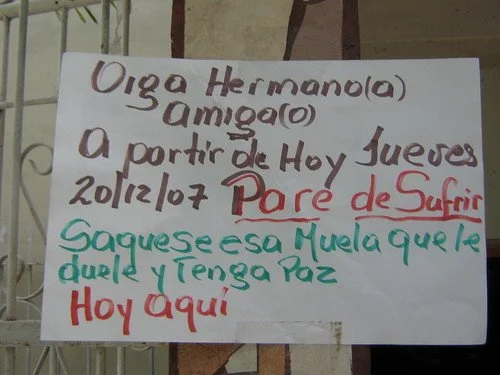 Oiga Hermano(a)
amiga(o)
A partir de Hoy Jueves
20/12/07 Pare de Sufrir
Saquese esa Muela que le
duele y Tenga Paz
Hoy aquí